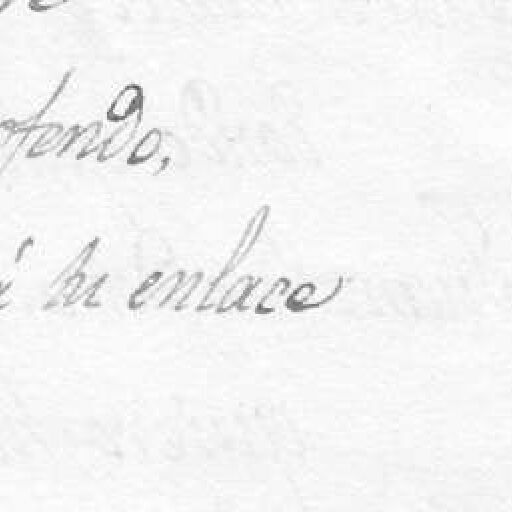 ofendo,
tu enlace